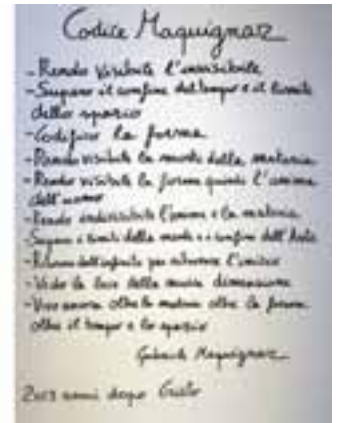 Codice Maquignaz
- Rendo visibile l'invisibile
- Supero il confine del tempo e il limite
dello spazio
- Codifico la forma
- Rendo visibile la morte della materia
- Rendo visibile la forma quindi l'anima
dell'uomo
- Rendo indivisibile l'anima e la materia
- Supero i limiti della mente e i confini dell'Arte
- dall'infinito per l'unico
- Vedo la luce della nuova dimensione
- Vivo ancora oltre la materia oltre la forma
oltre il tempo e lo spazio
Gabriele Maquignaz
2013 anni dopo Cristo